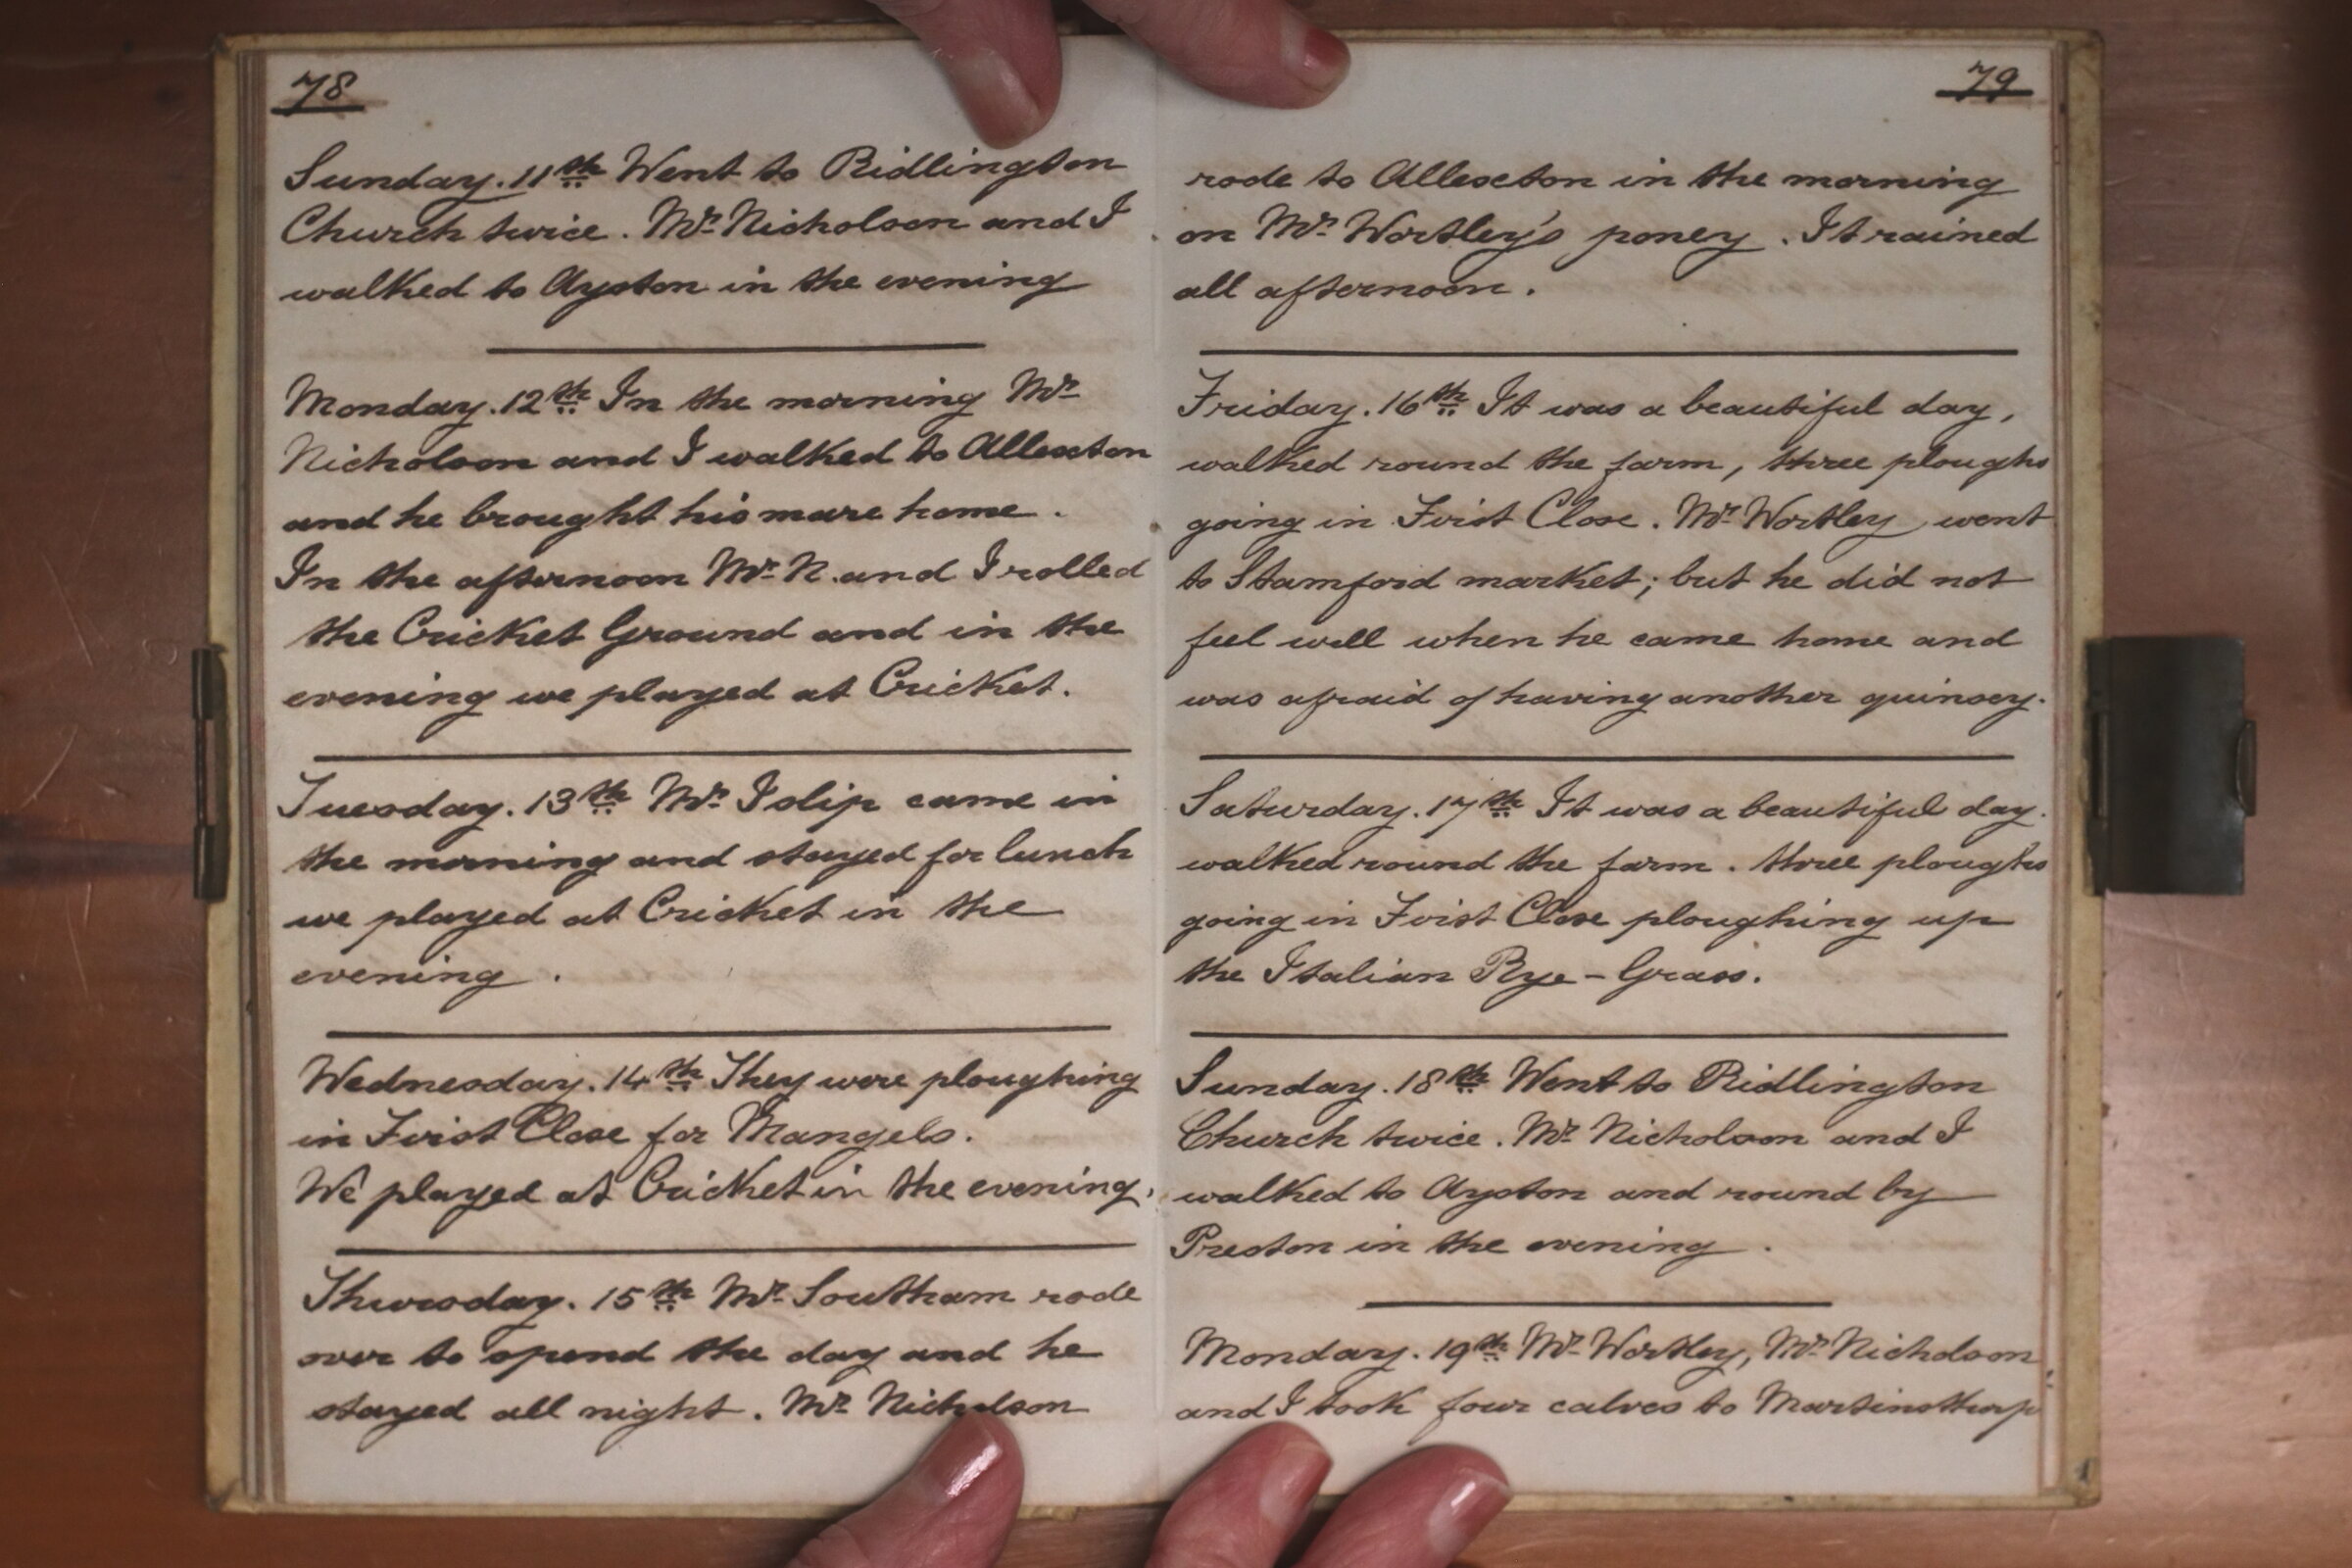 78
Sunday. 11th Went to Ridlington
Church twice. Mr. Nicholson and I
walked to Ayston in the evening
Monday. 12th In the morning Mr.
Nicholson and I walked to Allexton
and he brought his mare home.
In the afternoon Mr. N. and I rolled
the Cricket Ground and in the
evening we played at Cricket.
Tuesday. 13th Mr. Islip came in
the morning and stayed for lunch
we played at Cricket in the
evening.
Wednesday. 14th They were ploughing
in Foist Close for Mangels.
We played at Cricket in the evening.
Thursday. 15th Mr. Southam rode
over to spend the day and he
stayed all night. Mr. Nicholson
79
rode to Allexton in the morning
on Mr. Wortley's poney. It rained
all afternoon.
Friday. 16th It was a beautiful day,
walked round the farm, three ploughs
going in Foist Close. Mr. Wortley went
to Stamford market; but he did not
feel well when he came home and
was afraid of having another quinsey.
Saturday. 17th It was a beautiful day.
walked round the farm. three ploughs
going in Foist Close ploughing up
the Italian Rye-Grass.
Sunday. 18th Went to Ridlington
Church twice. Mr. Nicholson and I
walked to Ayston and round by
Preston in the evening.
Monday. 19th Mr. Wortley, Mr. Nicholson
and I took four calves to Martinsthorp